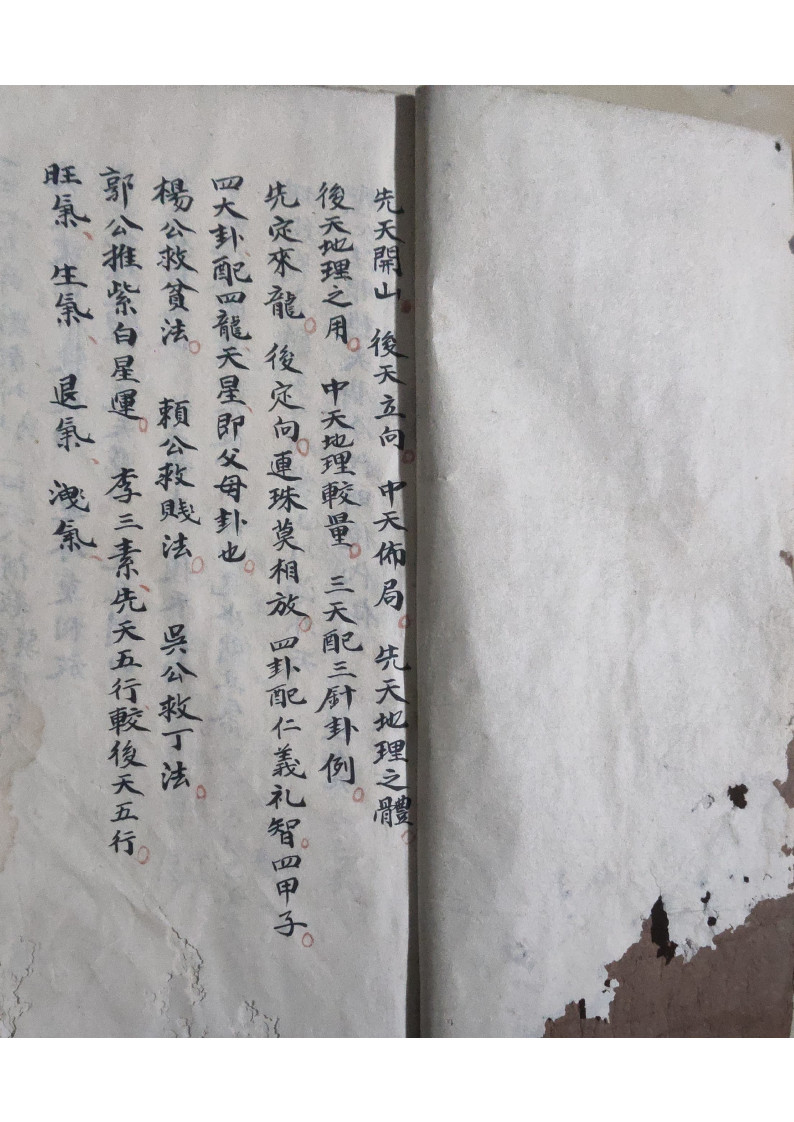 先天開山。後天立向。中天佈局。先天地理之體。
後天地理之用。中天地理較量。三天配三針卦例。
先定來龍。後定向。連珠莫相放。四卦配仁義礼智。四甲子。
四大卦配四龍天星、即父母卦也。
楊公救貧法。賴公救賤法。吳公救丁法。
郭公推紫白星運。李三素、先天五行較後天五行。
旺氣、生氣、退氣、洩氣、